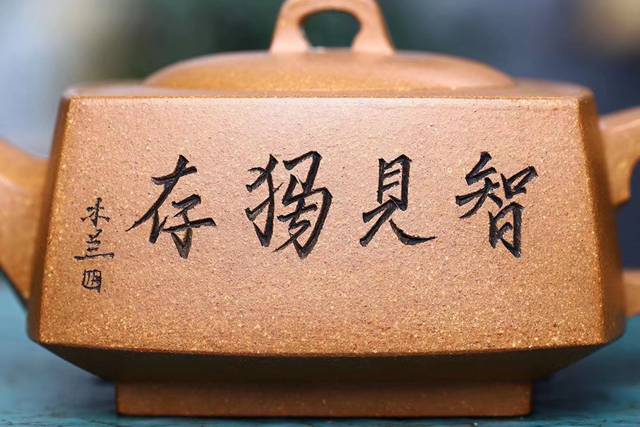 智見獨存
木蘭